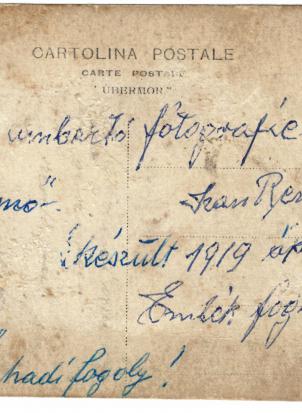 CARTOLINA POSTALE
CARTE POSTALE
"ÜBERMOR"
umbertó fótográfie
készült 1919 áp
Emlék fog
hadi fogoly!